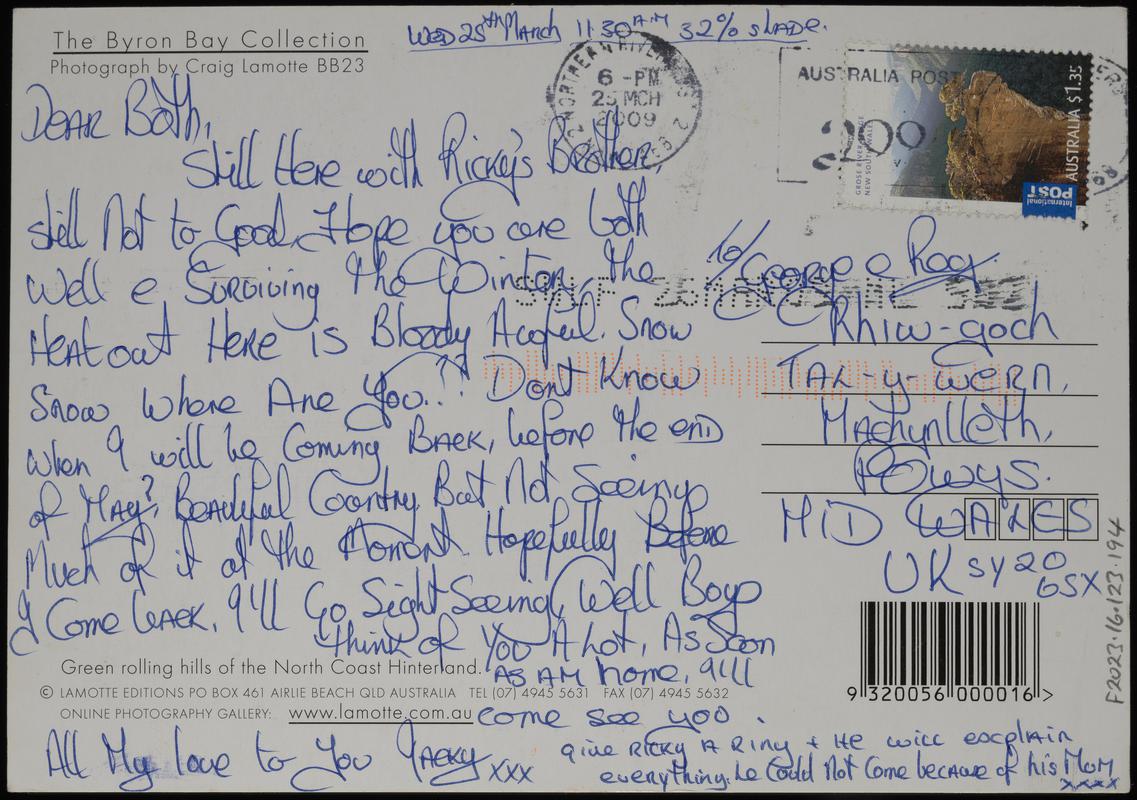 WED 25th March 11 30 A.M 32% SHADE.
The Byron Bay Collection
Photograph by Craig Lamotte BB23
6 -PM
25 MCH
2009
AUSTRALIA POST
200
GROSE RIVER GORGE
NEW SOUTH WALES
AUSTRALIA $1.35
International
POST
DEAR BOTH,
Still Here with Ricky's Brother,
still Not to Good, Hope you are both
well e Surviving the Winter, the
Heat out Here is Bloody Awful. Snow
Snow where Are You..?? Dont Know
when I will be Coming BACK, before the END
of MAY? Beautiful Country But Not Seeing
Much of it at the Moment. Hopefully Before
I Come back, I'll Go Sight Seeing, Well Boys
think of You A Lot, As Soon
As AM home, I'll
come see you .
All My love to You Jacky xxx
give RICKY A Ring + HE will explain
everything. he Could Not Come because of his Mum
xxxx
to/ George e Roy.
Rhiw-goch
TAL-y-wern,
Machynlleth,
Powys.
MID WALES
UK SY20
8SX
Green rolling hills of the North Coast Hinterland.
© LAMOTTE EDITIONS PO BOX 461 AIRLIE BEACH QLD AUSTRALIA TEL (07) 4945 5631 FAX (07) 4945 5632
ONLINE PHOTOGRAPHY GALLERY: www.lamotte.com.au
9 320056 000016 >
F2023.16.123.194